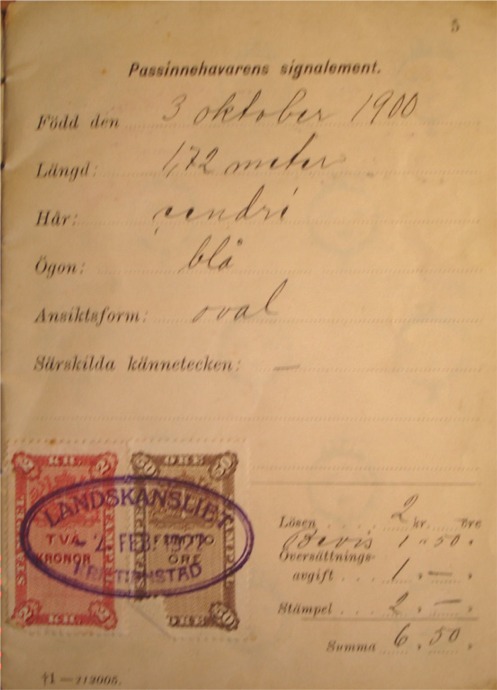 5
Passinnehavarens signalement.
Född den 3 oktober 1900
Längd: 1,72 meter
Hår: cendré
Ögon: blå
Ansiktsform: oval
Särskilda kännetecken: —
2 2
50
LANDSKANSLIET
TVÅ
KRONOR
FEMTIO
ÖRE
FEB.
KRISTIANSTAD
Lösen . . . . 2 kr. öre
Bevis 1 " 50 "
Översättnings-
avgift . . . 1 , — ,
Stämpel . . . 2 , — ,
Summa 6 , 50 ,
†1 — 112005.